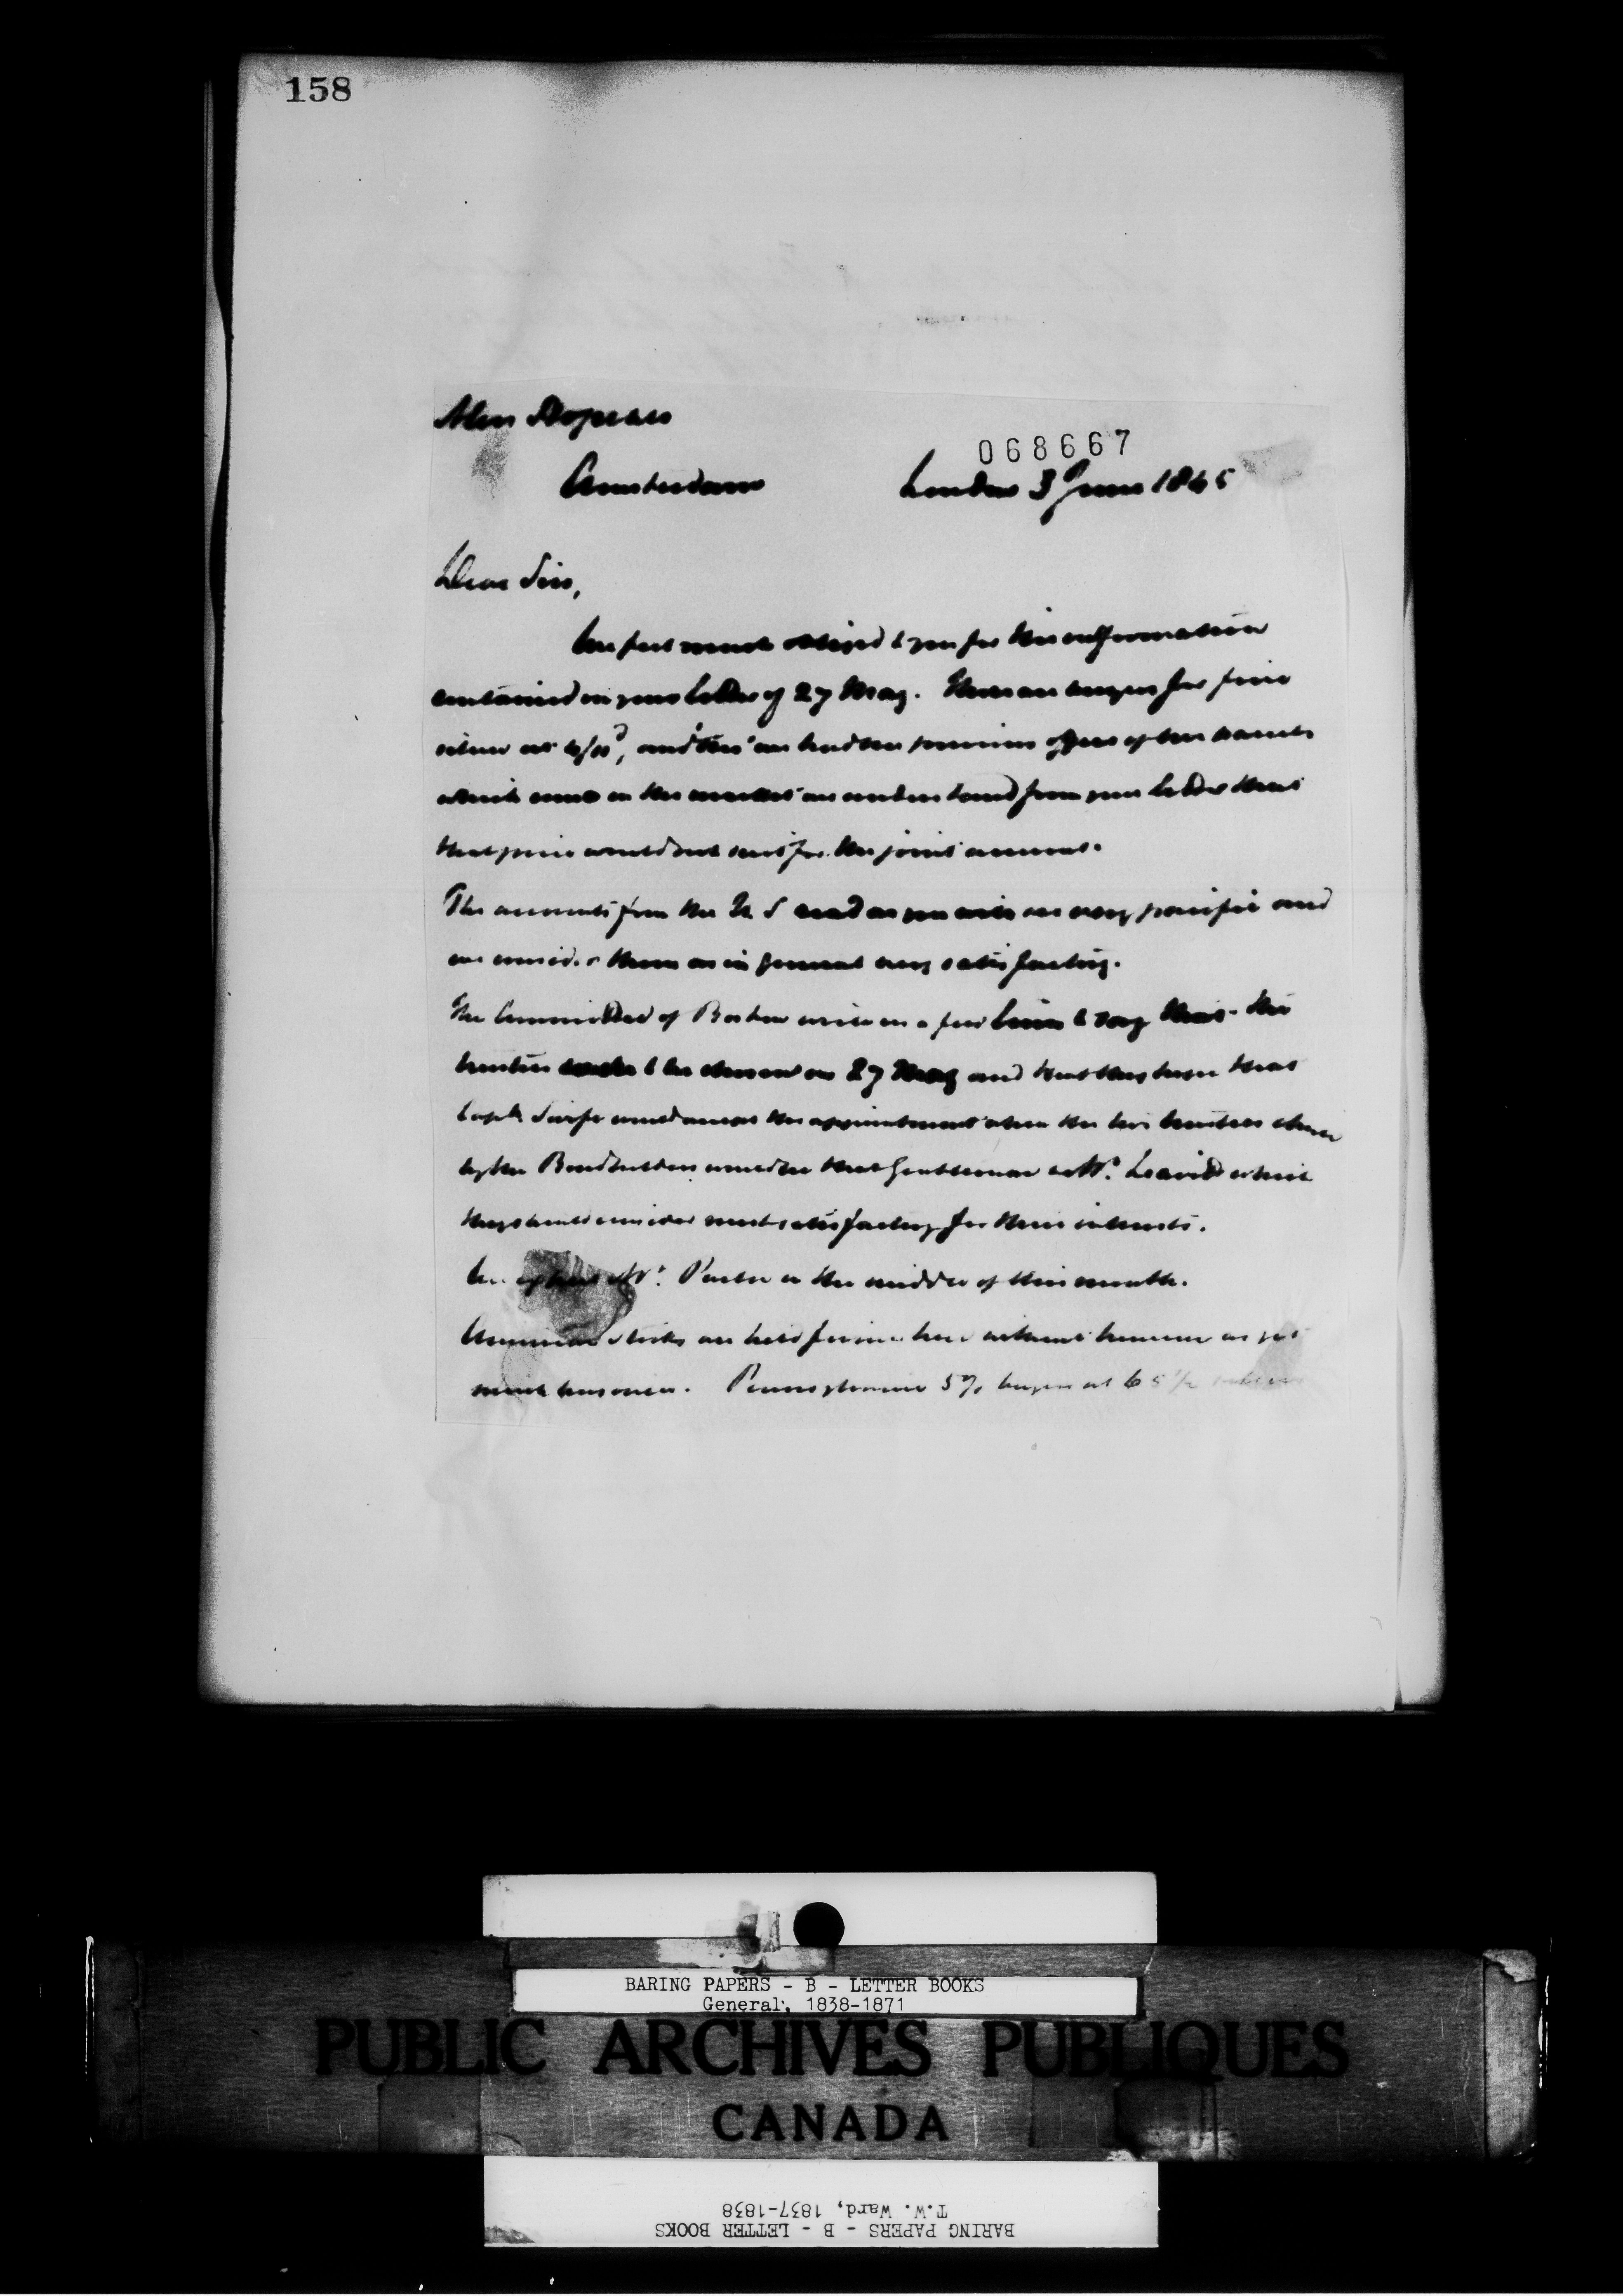 158
068667
Amsterdam London 3 June 1845
Dear Sirs,
We feel much obliged to you for the information
contained in your letter of 27 May. There are buyers for
silver at and had the of
which we understand from your letter that
that price would not suit for the joint account.
The accounts from the U S are very pacific and
we consider them as in general very satisfactory.
The Committee of Boston write in a few lines to say that the
trustees to be chosen on 27 May and that they hope that
Capt. Swift would accept the appointment when the two trustees chosen
by the Bondholders would be that Gentleman & Mr. Leavitt which
they would consider most satisfactory for their interests.
We expect Mr. in the middle of this month.
American stocks are held firmer here without however as yet
much business. Pennsylvania 5% buyers at 65 1/2
BARING PAPERS - B - LETTER BOOKS
General, 1838-1871
PUBLIC ARCHIVES PUBLIQUES
CANADA
T.W. Ward, 1837-1838
BARING PAPERS - B - LETTER BOOKS